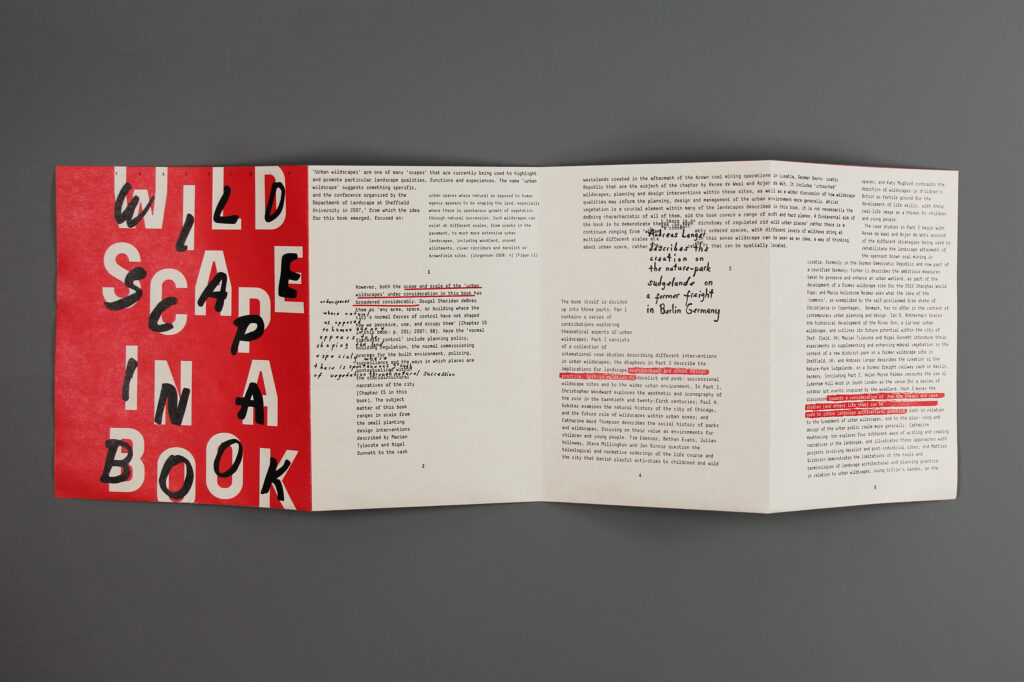 WILD
SCAPE
IN A
BOOK
WILD
SCAPE
IN A
BOOK
'Urban wildscapes' are one of many 'scapes' that are currently being used to highlight
and promote particular landscape qualities, functions and experiences. The name 'urban
wildscape' suggests something specific,
and the conference organized by the
Department of Landscape at Sheffield
University in 2007,' from which the idea
for this book emerged, focused on:
urban spaces where natural as opposed to human
agency appears to be shaping the land, especially
where there is spontaneous growth of vegetation
through natural succession. Such wildscapes can
exist at different scales, from cracks in the
pavement, to much more extensive urban
landscapes, including woodland, unused
allotments, river corridors and derelict or
brownfield sites. (Jorgensen 2008: 4) (Figue i1)
1
However, both the scope and scale of the 'urban
wildscapes' under consideration in this book has
broadened considerably. Dougal Sheridan debnes
them as 'any area, space, or building where the
city's normal forces of control have not shaped
how we perceive, use, and occupy them' (Chapter 15
in this book: p. 201; 2007: 98). Here the 'normal
forces of control' include planning policy,
building regulation, the normal commissioning
process for the built environment, policing,
surveillance and the ways in which places are
contextualized within
the
narratives of the city
(Chapter 15 in this
book). The subject
matter of this book
ranges in scale from
the small planting
design interventions
described by Marian
Tylecote and Nigel
Dunnett to the vast
urban spaces
where natural
as opposed
to human agency
appears to be
shaping the land
especially where
there is spontaneous growth
of vegetation through natural succession
2
wastelands created in the aftermath of the brown coal mining operations in Lusatia, German Demo- cratic
Republic that are the subject of the chapter by Renee de Waal and Arjen de Wit. It includes 'untouched'
wildscapes, planning and design interventions within these sites, as well as a wider discussion of how wildscape
qualities may inform the planning, design and management of the urban environment more generally. Whilst
vegetation is a crucial element within many of the landscapes described in this book, it is not necessarily the
defining characteristic of all of them, and the book covers a range of soft and hard planes. A fundamental aim of
the book is to demonstrate that
dichotomy of regulated rid wild urban places' rather there is a
continuum ranging from
ordered spaces, with different levels of wildness sting at
multiple different scales at
this sense wildscape can be seen as an idea, a way of thinking
about urban space, rather
that can be spatially located.
Andreas Langer
describes the
creation on
the nature-park
sudgelande on
a former freight
in Berlin Germany
3
The book itself is divided
up into three parts. Pan 1
contains a series of
contributions exploring
theoretical aspects of urban
wildscapes; Part 2 consists
of a collection of
international case studies describing different interventions
in urban wildscapes; the dhapters in Part 3 describe the
implications for landscape architectural and urban design
practice, both in relation to derelict and post- successional
wildscape sites and to the wider urban environment. In Part 1,
Christopher Woodward explores the aesthetic and iconography of
the exin in the twentieth and twenty-first centuries; Paul H.
Gobster examines the natural history of the city of Chicago,
and the future role of wildscapes within urban areas; and
Catharine Ward Thompson describes the social history of parks
and wildscapes, focusing on their value as environments for
children and young people. Tim Edensor, Bethan Evans, Julian
Holloway, Steve Millington and Jon Binnie question the
teleological and normative orderings of the life course and
the city that banish playful activities to childreod and wild
4
spaces; and Katy Mugford contrasts the
depiction of wildscapes in children's
fiction as fertile ground for the
development of life skills, with their
real-life image as a threat to children
and young people.
The case studies in Part 2 begin with
Renee de Waal and Arjen de Wits account
of the different strategies being used to
rehabilitate the landscape aftermath of
the opencast brown coal mining in
Lusatia, formerly in the German Democratic Republic and now part of
a reunified Germany;
describes the ambitious measures
taken to preserve and enhance an urban wetland, as part of the
development of a former wildscape site for the 2010 Shanghai World
Expo; and Maria Hellstrom Reimer asks what the uses of the
'commons', as exemplified by the self-proclaimed free state of
Christiania in Copenhagen, Denmark, has to offer in the context of
contemporary urban planning and design. Ian D. Rotherham traces
the historical development of the River Don, a largest urban
wildscape, and outlines its future potential within the city of
Shef- field, UK; Marian Tylecote and Nigel Dunnett introduce their
experiments in supplementing and enhancing ruderal vegetation in the
context of a new district park on a former wildscape site in
Sheffield, UK; and Andreas Langer describes the creation of the
Nature-Park Sudgelande, on a former freight railway yard in Berlin,
Germany. Concluding Part 2, Helen Morse Palmer recounts the use of
Sydenham Hill Wood in South London as the venue for a series of
outdoor art events inspired by the woodland. Part 3 moves the
discussion towards a consideration of how the theory and case
studies (and others like them) can be
used to inform landscape architectural practice, both in relation
to the treatment of urban wildscapes, and to the plan- ning and
design of the urban public realm more generally. Catherine
Heathering- ton explores four different ways of writing and reading
narratives in the landscape, and illustrates these approaches with
projects involving derelict and post-industrial sites; and Mattias
Qvistrom demonstrates the limitations of the tools and
terminologies of landscape architectural and planning practice
in relation to urban wildscapes, using Gyllin's Garden, on the
5